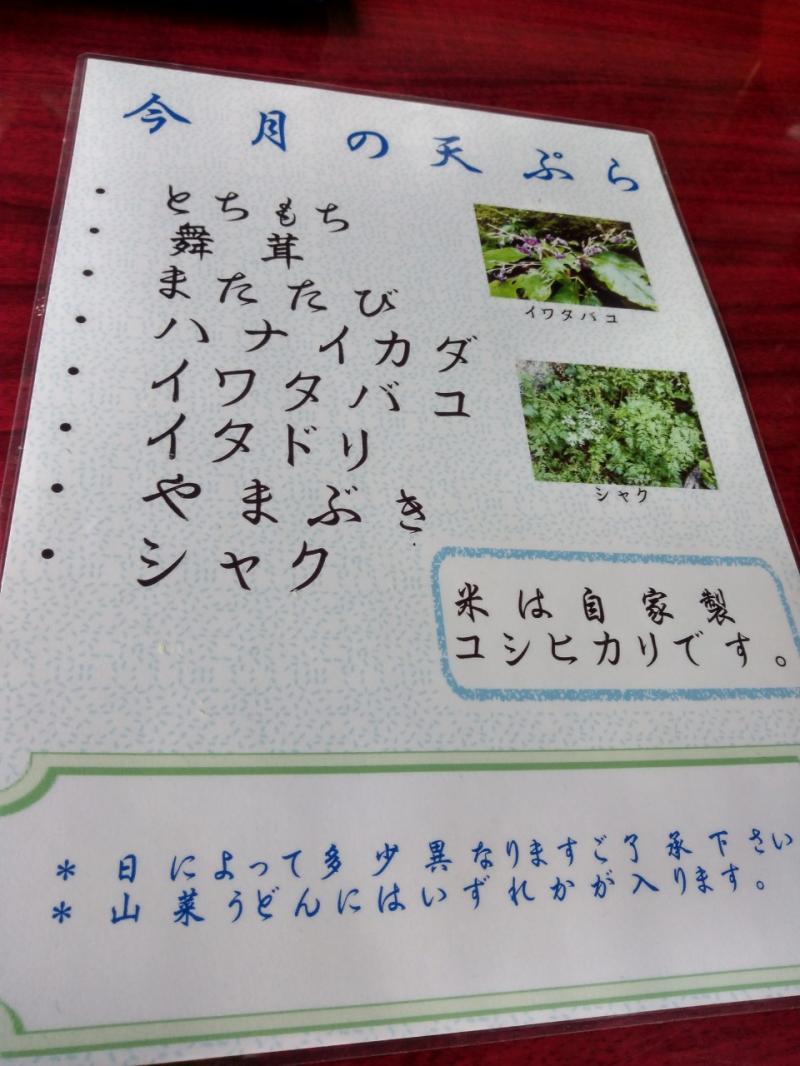 今月の天ぷら
・とちもち
・舞茸
・またたび
・ハナイカダ
・イワタバコ
・イタドリ
・やまぶき
・シャク
イワタバコ
シャク
米は自家製
コシヒカリです。
* 日によって多少異なりますご了承下さい
* 山菜うどんにはいずれかが入ります。